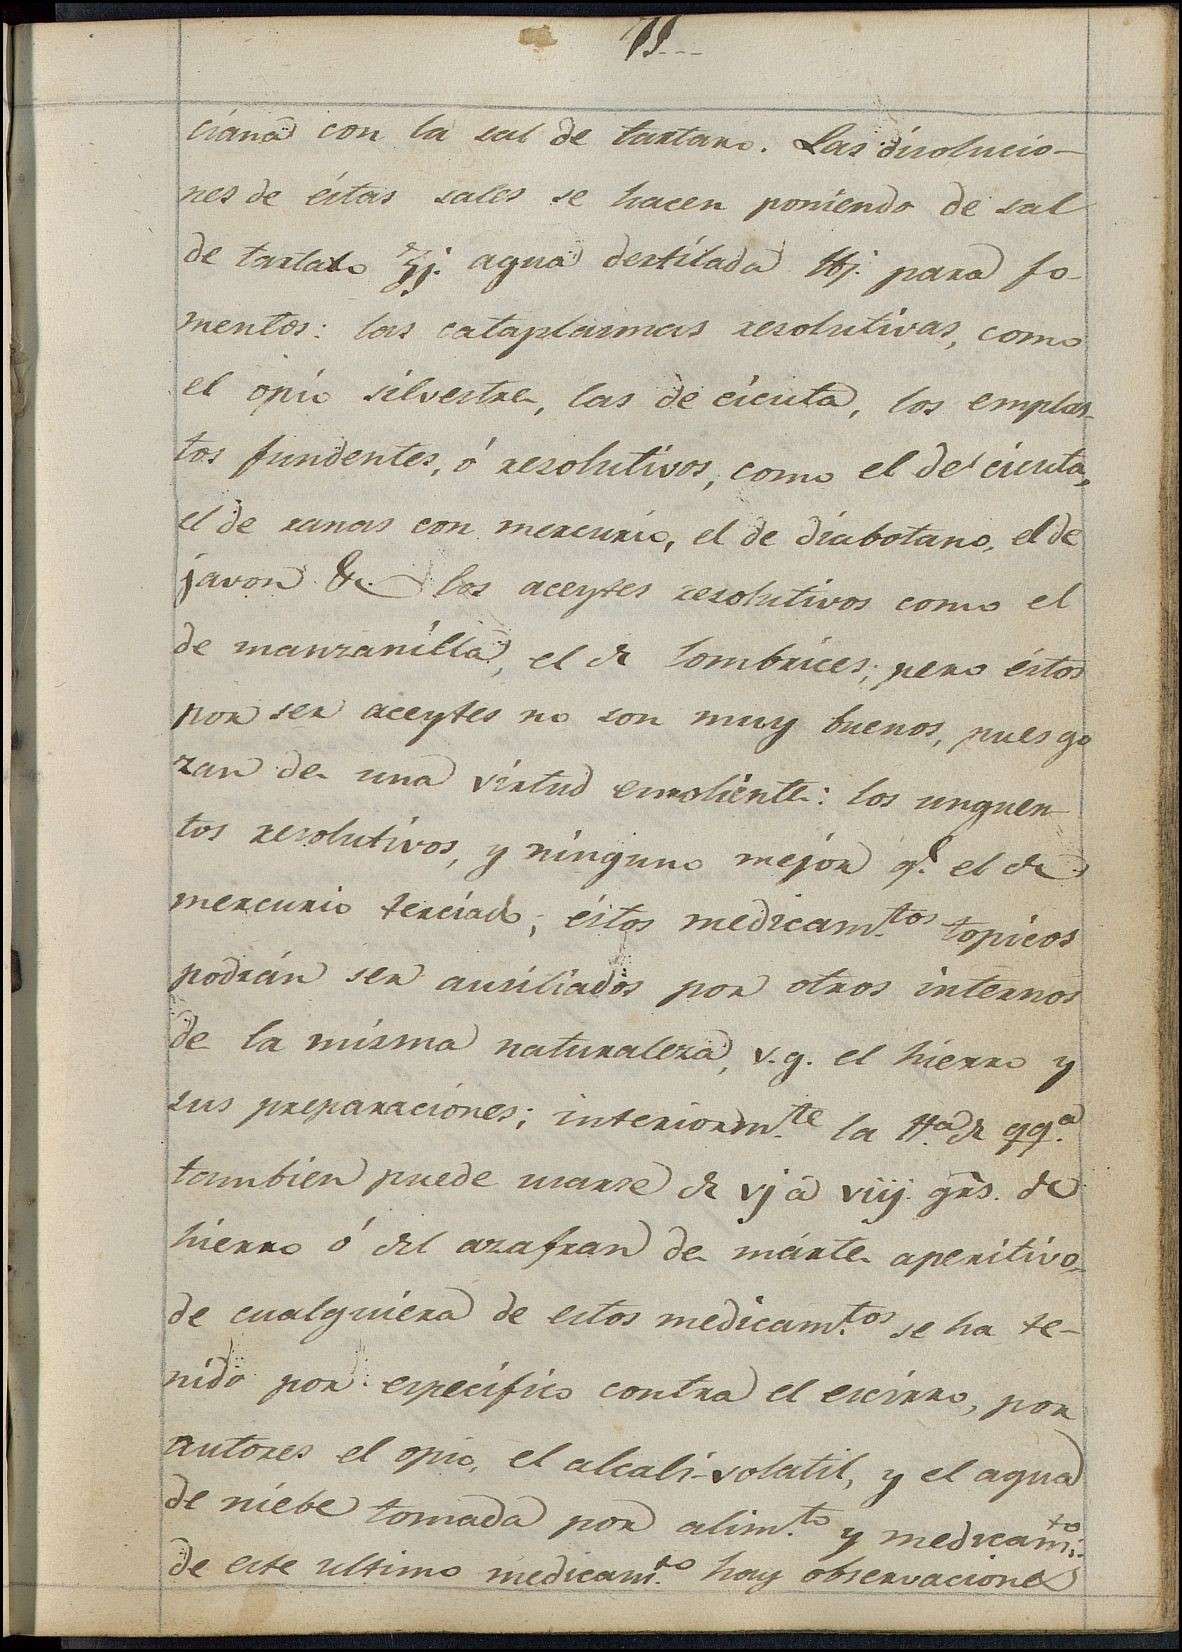 ciana con la sal de tartaro. Las disolucio-
nes de éstas sales se hacen poniendo de sal
de tartaro ʒj. agua destilada ℔j. para fo-
mentos: las cataplasmas resolutivas, como
el opio silvestre, las de cicuta, los emplas-
tos fundentes, ó resolutivos, como el de cicuta,
el de ranas con mercurio, el de diabotano, el de
javon &c. los aceytes resolutivos como el
de manzanilla, el de lombrices; pero éstos
por ser aceytes no son muy buenos, pues go
zan de una virtud emoliente: los unguen-
tos resolutivos, y ninguno mejor q.e el de
mercurio terciado; éstos medicam.tos topicos
podrán ser ausiliados por otros internos
de la misma naturaleza, v.g. el hierro y
sus preparaciones; interiorm.te la tt.a de qq.a
tambien puede usarse de vj a viij. grs. de
hierro ó del azafran de marte aperitivo-
de cualquiera de estos medicam.tos se ha te-
nido por especifico contra el escirro, por
autores el opio, el alcali-volatil, y el agua
de niebe tomada por alim.to y medicam.to:
de este ultimo medicam.to hay observaciones